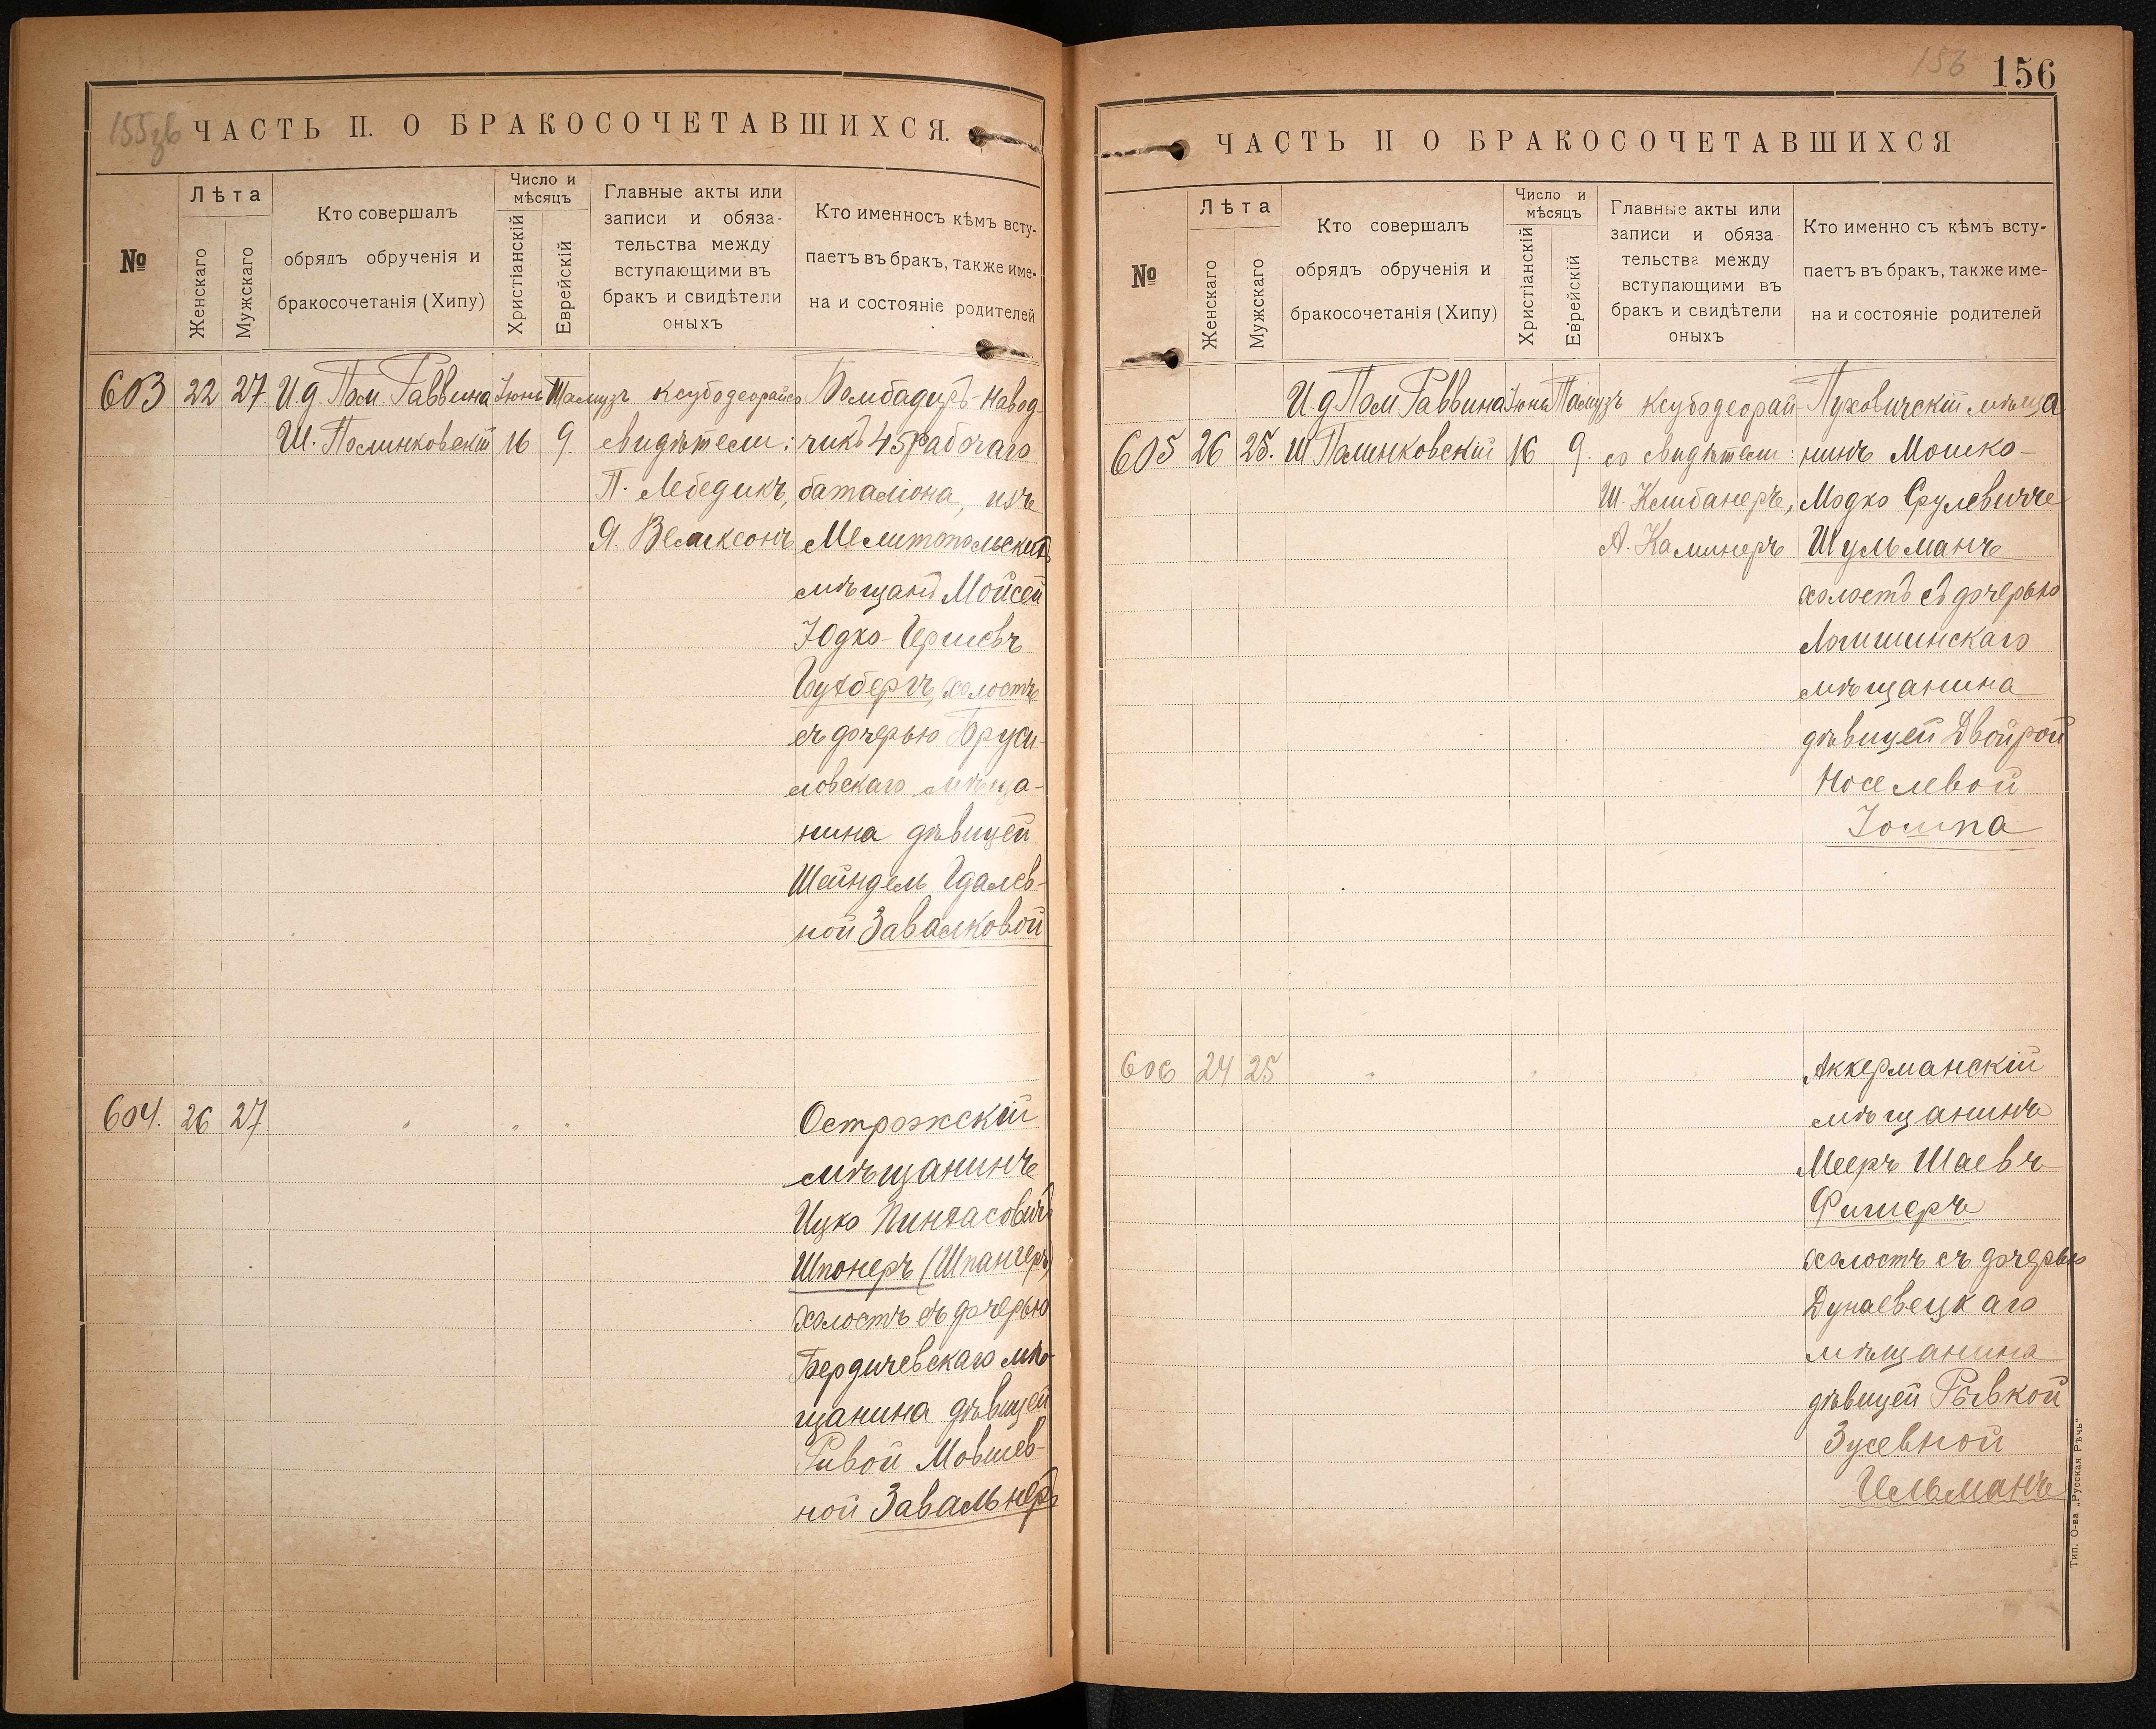 155зв
ЧАСТЬ II. О БРАКОСОЧЕТАВШИХСЯ.
№
Лѣта
Женскаго
Мужскаго
Кто совершалъ
обрядъ обрученія и
бракосочетанія (Хипу)
Число и
мѣсяцъ
Христіанскій
Еврейскій
Главные акты или
записи и обяза-
тельства между
вступающими въ
бракъ и свидѣтели
оныхъ
Кто именносъ кѣмъ всту-
паетъ въ бракъ, также име-
на и состояніе родителей
603 22 27 И.д. Пом. Раввина
Ш. Полинковскій
Іюнь
16
Тамузъ
9.
Ксубодеорайсо
свидѣтели:
П. Лебедикъ,
Я. Великсонъ
Бомбадиръ-навод-
чикъ 45 рабочаго
баталіона, изъ
Мелитопольскихъ
мѣщанъ Мойсей
Юдко-Гершевъ
Гухбергъ, холостъ
съ дочерью Бруси-
ловскаго мѣща-
нина дѣвицей
Шейндель Гдалев-
ной Завалковой
604. 26 27 " " "
Острожскій
мѣщанинъ
Ицко Пинхасовичъ
Шпонеръ (Шпангеръ)
холостъ съ дочерью
Бердичевскаго мѣ-
щанина дѣвицей
Ривой Мовшев-
ной Завальнеръ
156 156
ЧАСТЬ II О БРАКОСОЧЕТАВШИХСЯ
№
Лѣта
Женскаго
Мужскаго
Кто совершалъ
обрядъ обрученія и
бракосочетанія (Хипу)
Число и
мѣсяцъ
Христіанскій
Еврейскій
Главные акты или
записи и обяза
тельства между
вступающими въ
бракъ и свидѣтели
оныхъ
Кто именно съ кѣмъ всту-
паетъ въ бракъ, также име-
на и состояніе родителей
И.д. Пом. Раввина
605 26 25. Ш Полинковскій
Іюнь
16
Тамузъ
9.
Ксубодеорай-
со свидѣтели:
Ш. Клибанеръ,
А. Каминеръ
Пуховичскій мѣща
нинъ Мошко-
Модко Срулевичъ
Шульманъ
холостъ съ дочерью
Логишинскаго
мѣщанина
дѣвицей Двойрой
Носелевой
Іошпа
606 24 25 "
Аккерманскій
мѣщанинъ
Мееръ Шаевъ
Фишеръ
холостъ съ дочерью
Дунаевецкаго
мѣщанина
дѣвицей Рывкой
Зусевной
Гельманъ
Тип. О-ва „Русская Рѣчь“